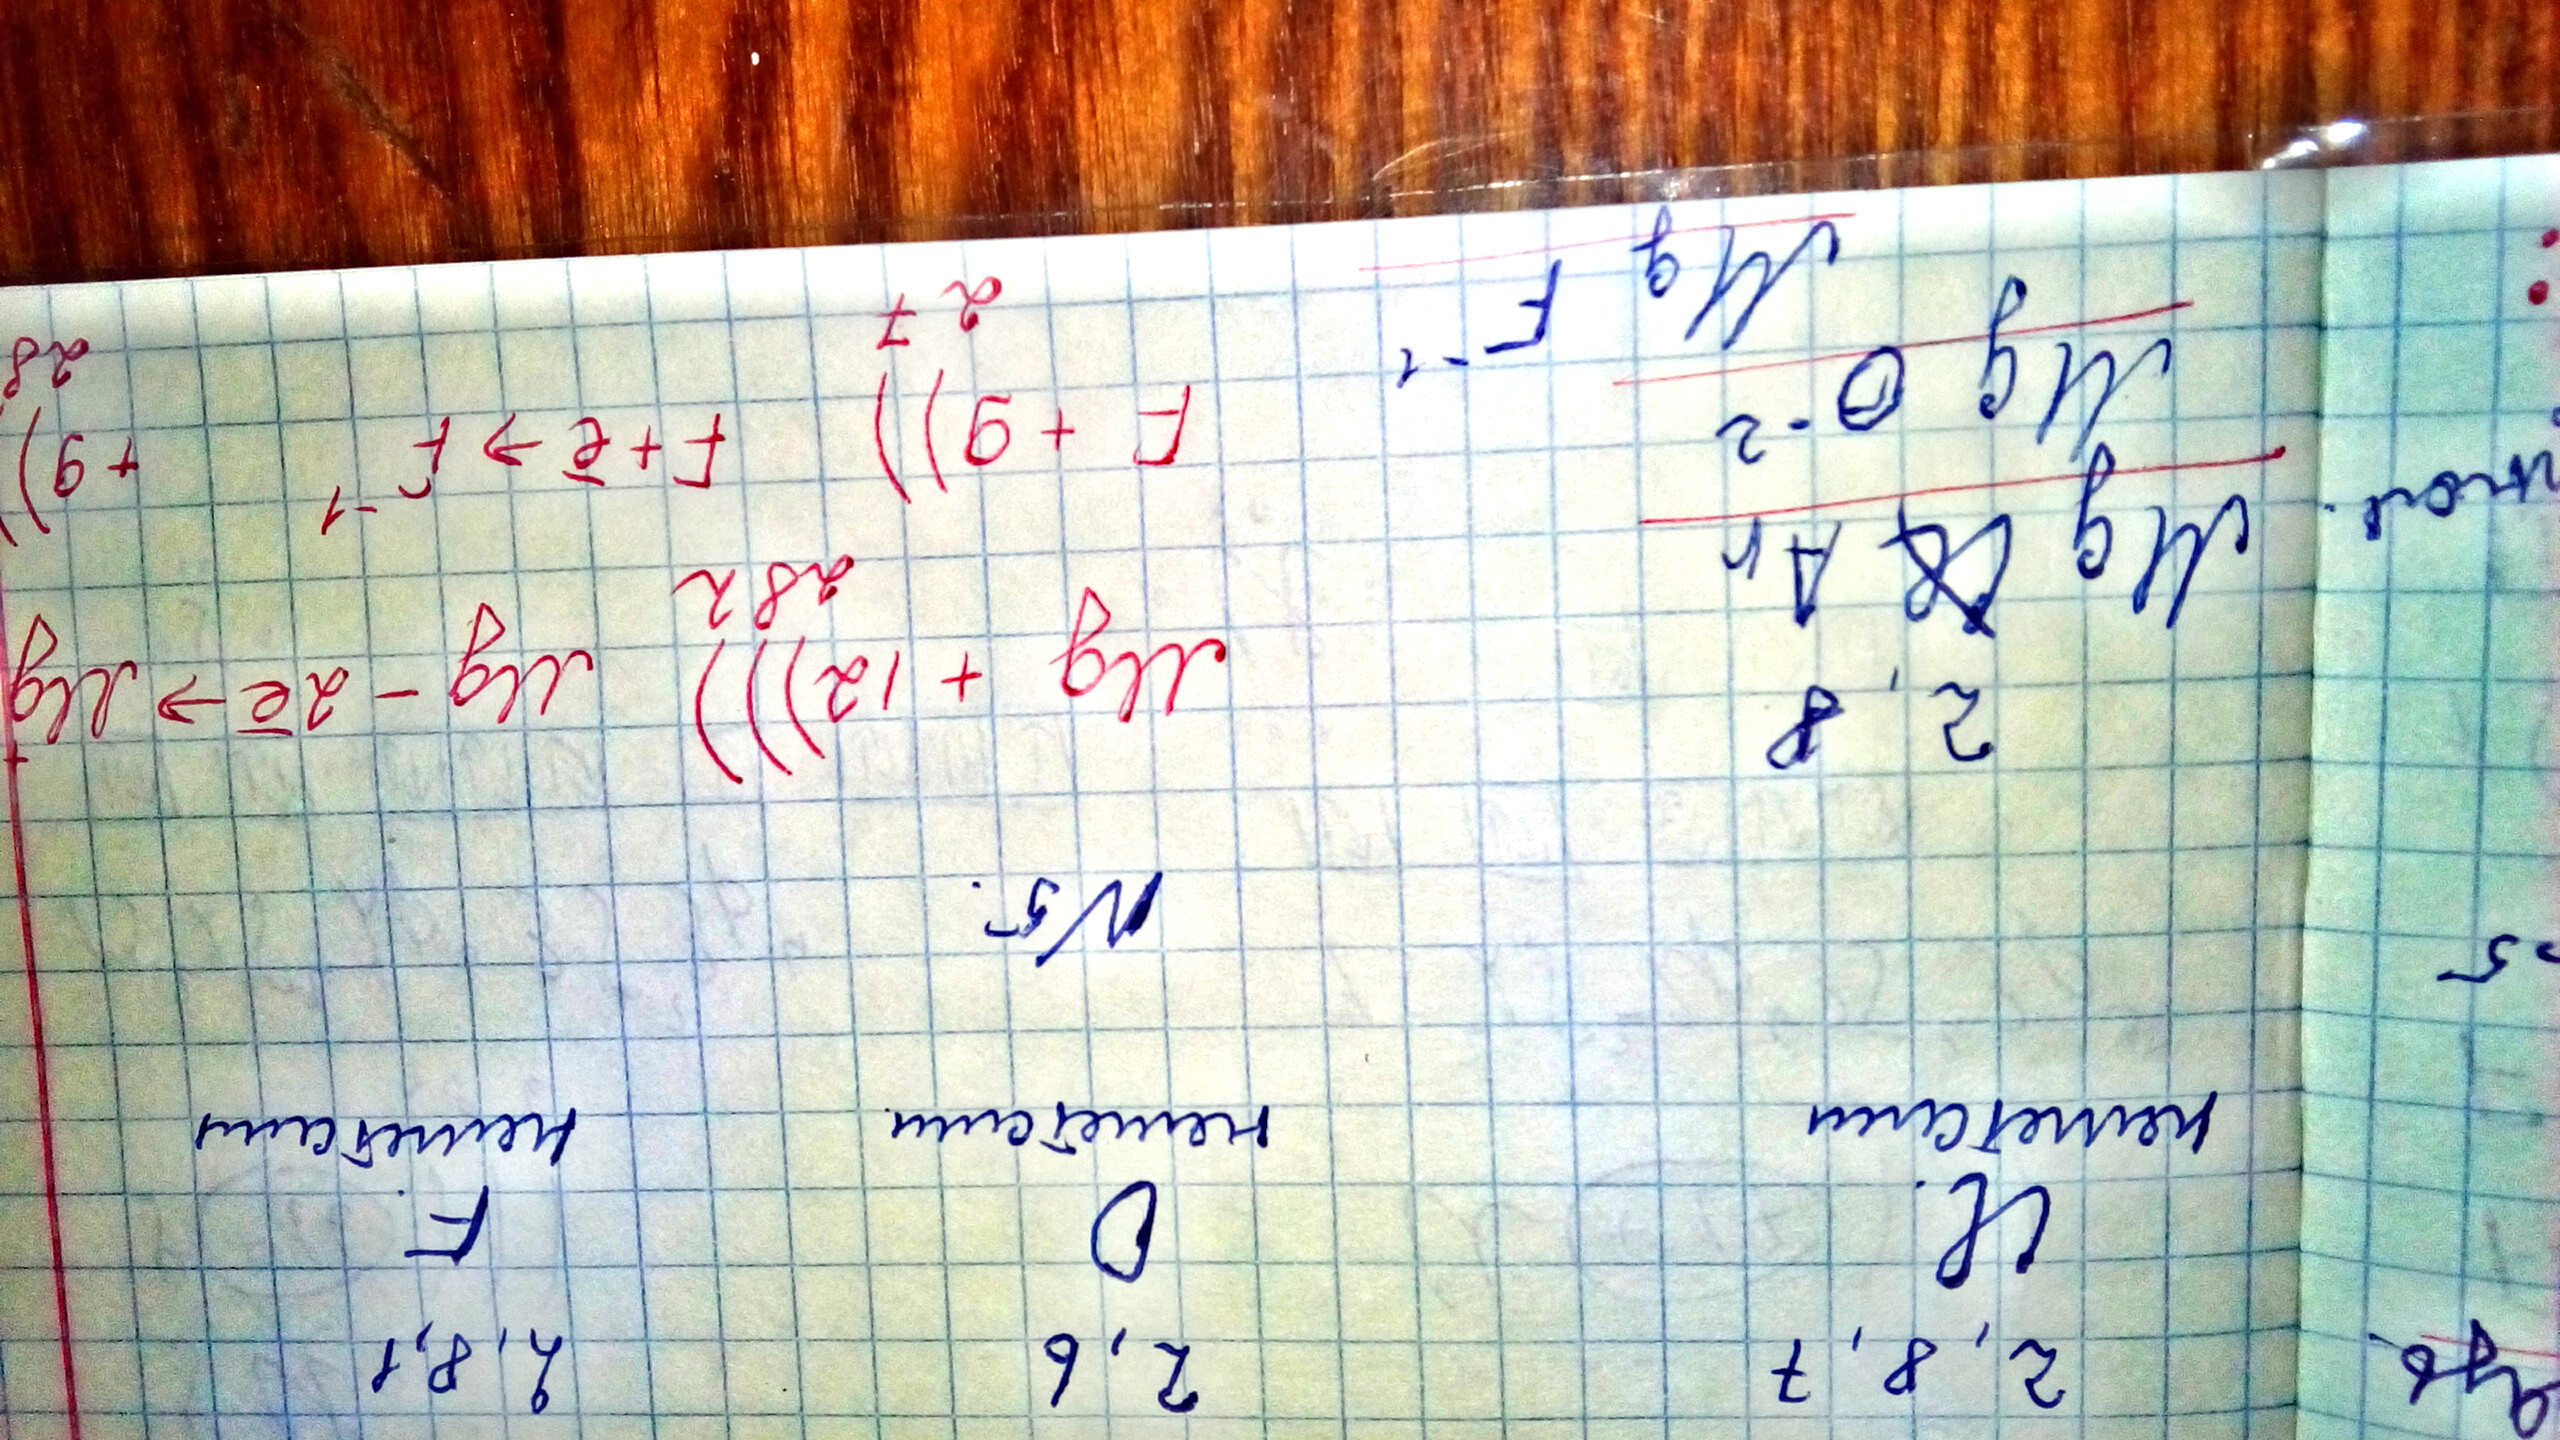 2, 8, 7 2, 6 2, 8, 1
Cl. O F.
неметалл неметалл неметалл
5
N5.
2, 8
Mg + 12)))  Mg - 2ē → Mg +
2 8 2
Mg Ar
F + 9))  F + ē → F -1  + 9))
2 7  2 8
Mg O -2
Mg F -1